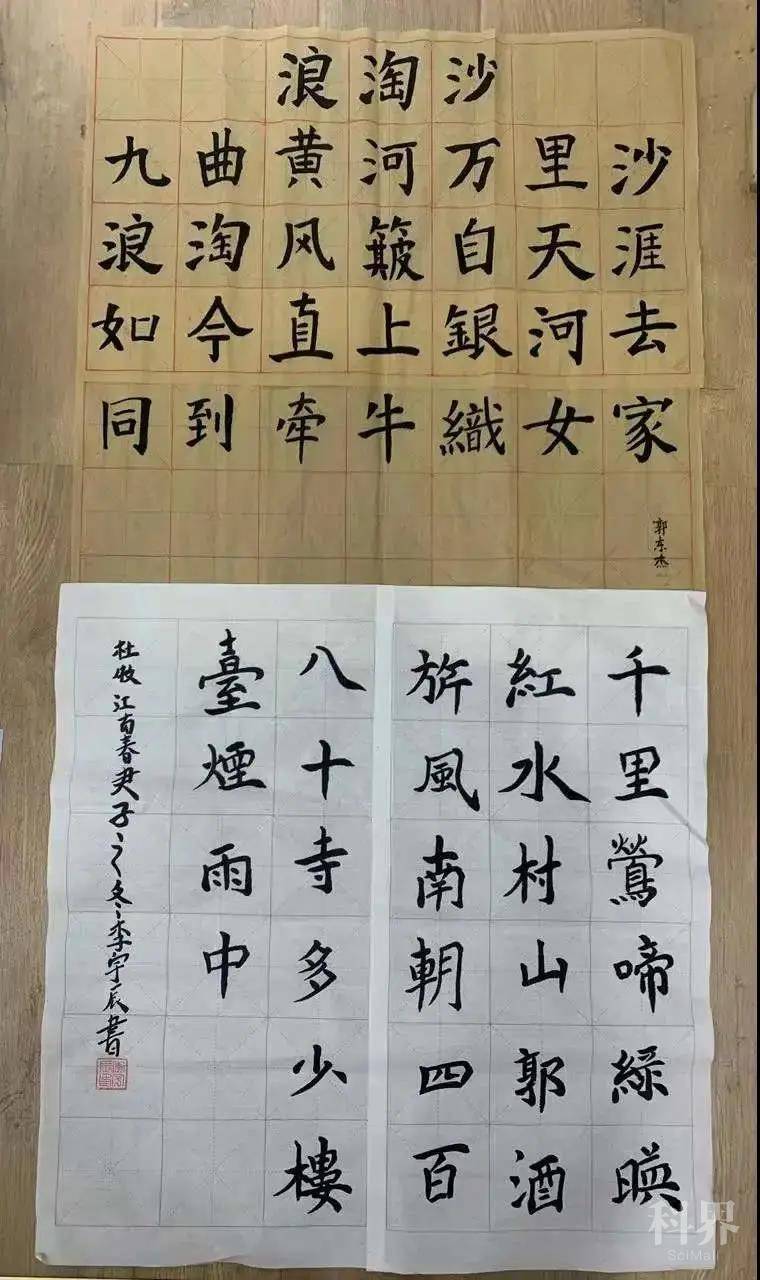 浪淘沙
九曲黄河万里沙
浪淘风簸自天涯
如今直上銀河去
同到牵牛織女家
郭东杰
千里鶯啼緑暎
紅水村山郭酒
旂風南朝四百
八十寺多少樓
臺煙雨中
杜牧江南春庚子之冬李宇辰書
科界
SciMall